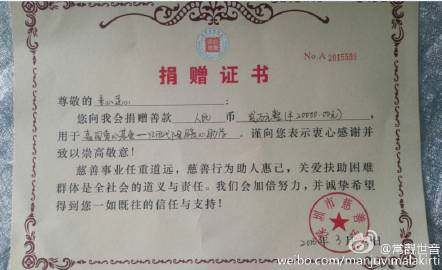 No.A 2015559
捐赠证书
尊敬的
您向我会捐赠善款 人民 币 贰万元整(¥20000.00元),
用于 。谨向您表示衷心感谢并
致以崇高敬意!
慈善事业任重道远,慈善行为助人惠己,关爱扶助困难
群体是全社会的道义与责任。我们会加倍努力,并诚挚希望
得到您一如既往的信任与支持!
深圳市慈善
3月
@常戬世音
weibo.com/manjuvimalakirti